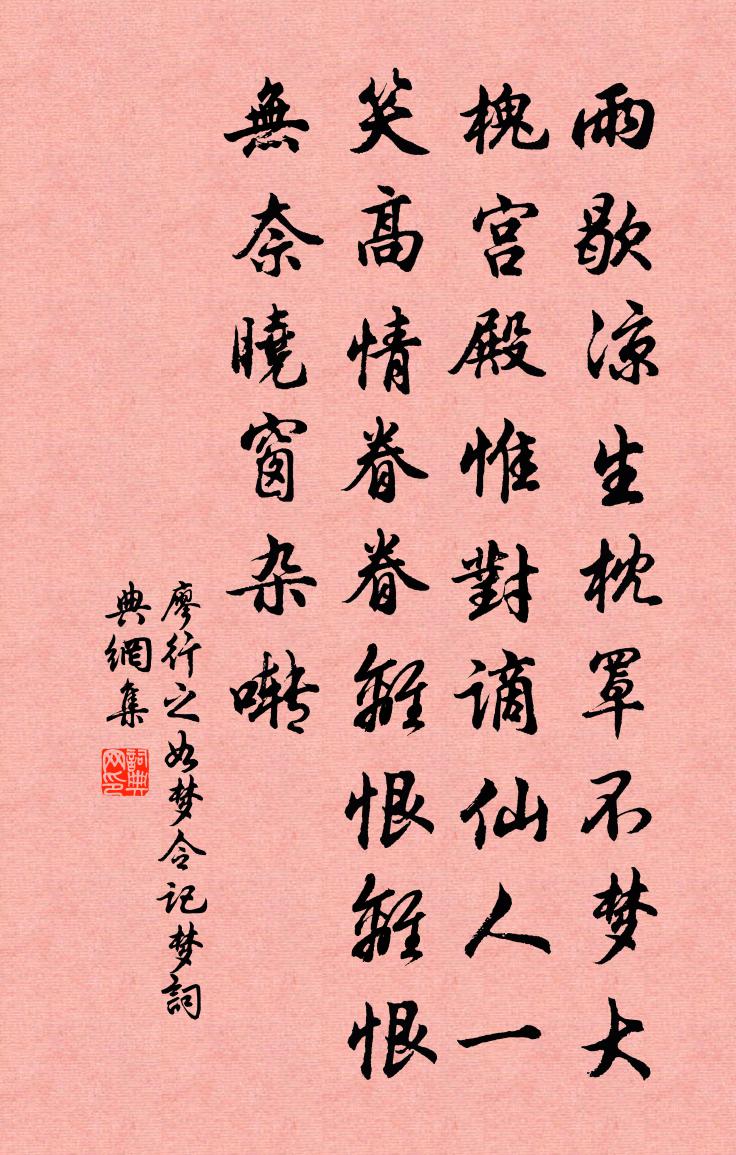 雨歇凉生枕罩不梦大
槐宫殿惟對谪仙人一
笑高情眷眷離恨離恨
無奈曉窗杂啭
廖行之如梦令记梦詞
典網集
詞典
网印